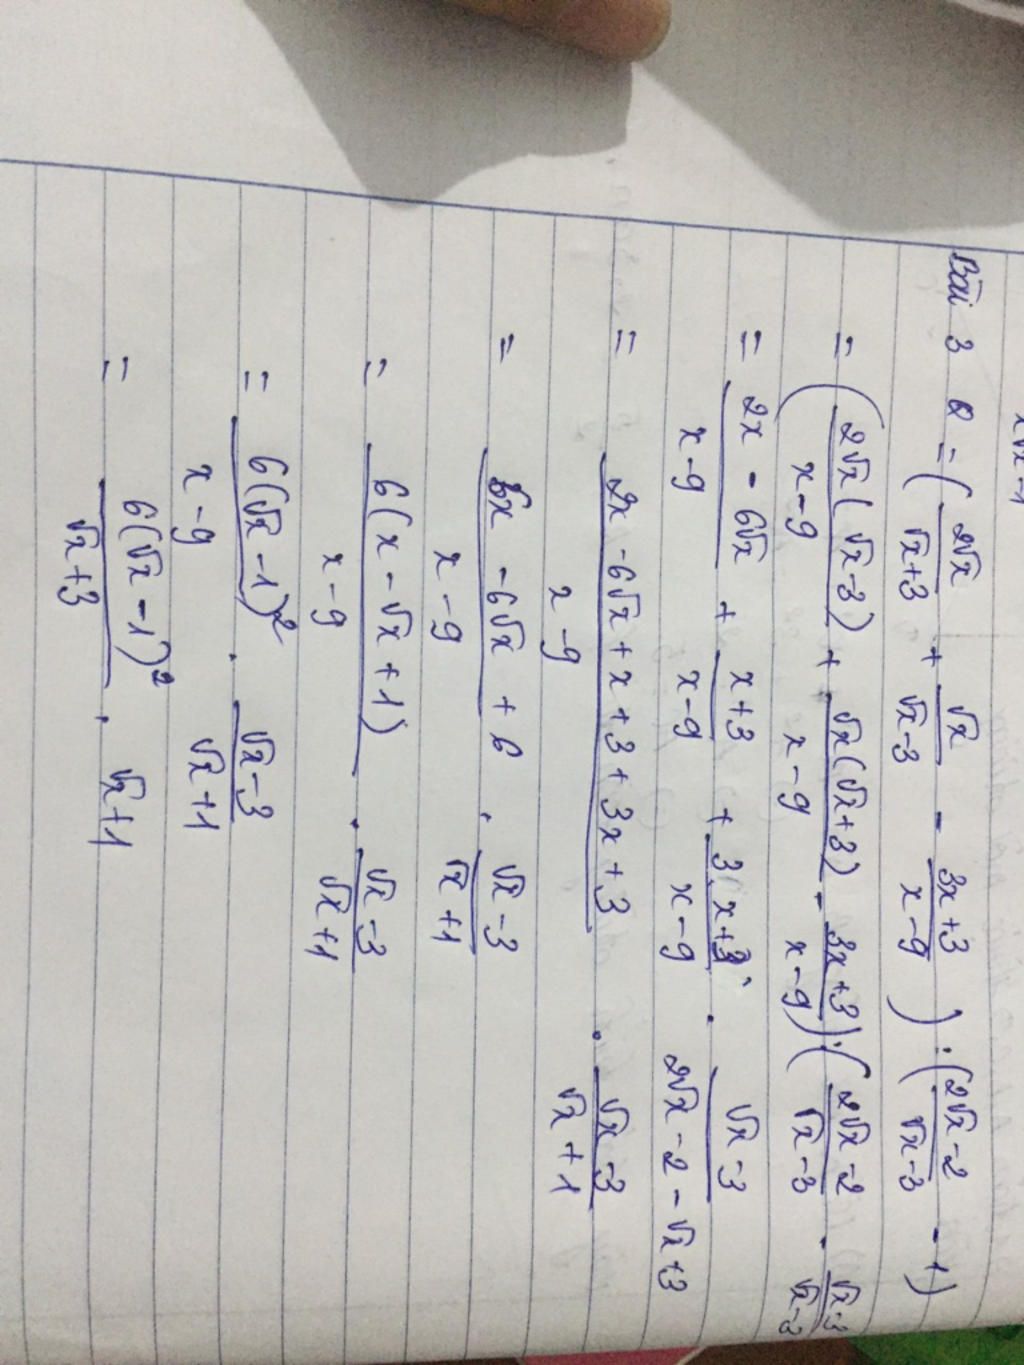 x√x-1
Bài 3 Q = ( 2√x / √x+3 + √x / √x-3 - 3x+3 / x-9 ) : ( 2√x-2 / √x-3 - 1 )
= ( 2√x(√x-3) / x-9 + √x(√x+3) / x-9 - 3x+3 / x-9 ) : ( 2√x-2 / √x-3 - √x-3 / √x-3
= 2x - 6√x / x-9 + x+3 / x-9 + 3(x+3) / x-9 . √x-3 / 2√x-2-√x+3
= 2x-6√x+x+3+3x+3 / x-9 . √x-3 / √x+1
= 6x - 6√x + 6 / x-9 . √x-3 / √x+1
= 6(x-√x+1) / x-9 . √x-3 / √x+1
= 6(√x-1)² / x-9 . √x-3 / √x+1
= 6(√x-1)² / √x+3 . √x+1